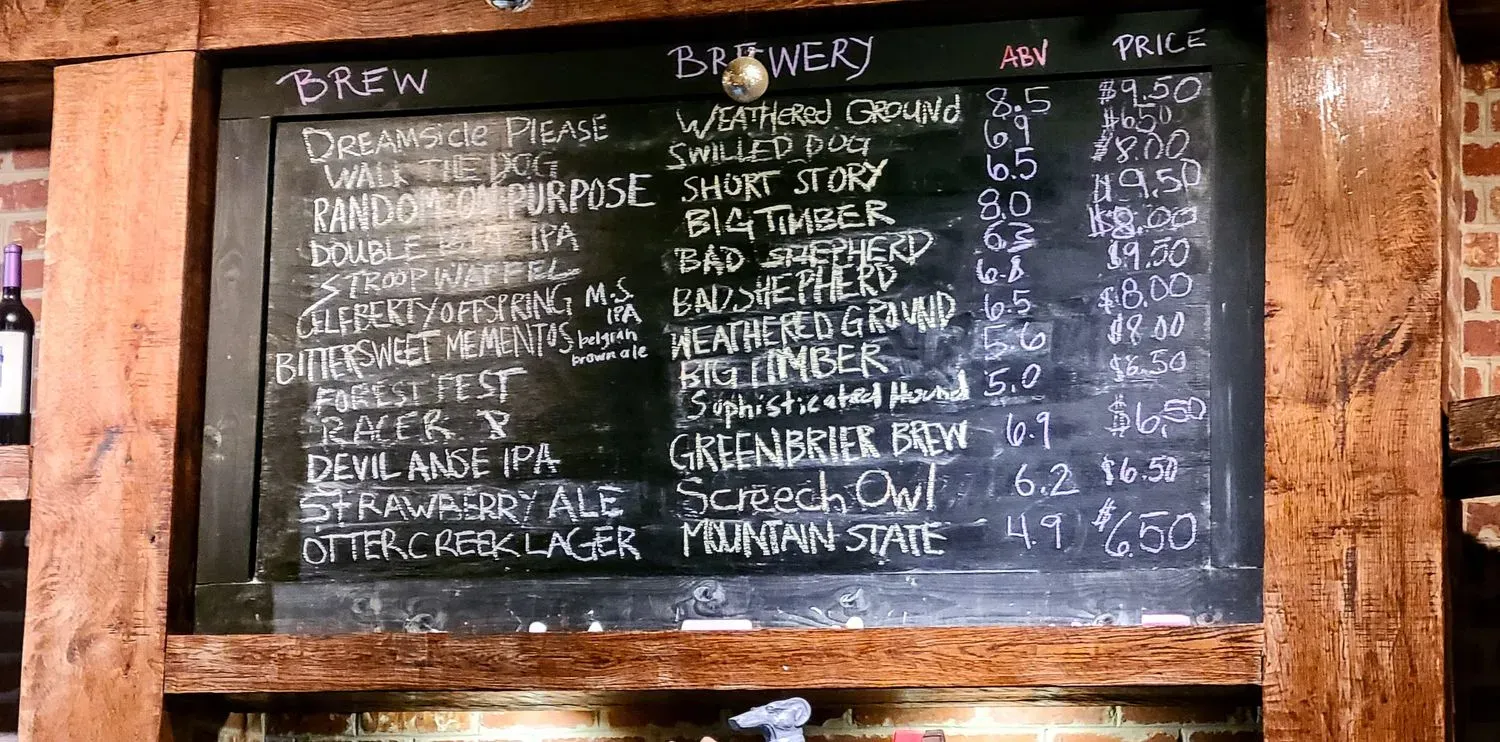 BREW BREWERY ABV PRICE
DREAMSICLE PLEASE WEATHERED GROUND 8.5 $9.50
WALK THE DOG SWILLED DOG 6.9 $6.50
RANDOM ON PURPOSE SHORT STORY 6.5 $8.00
DOUBLE IPA BIG TIMBER 8.0 $9.50
STROOPWAFFEL BAD SHEPHERD 6.3 $8.00
CELEBERTY OFFSPRING M.S. IPA BAD SHEPHERD 6.8 $9.50
BITTERSWEET MEMENTOS belgian brown ale WEATHERED GROUND 6.5 $8.00
FOREST FEST BIG TIMBER 5.6 $8.00
RACER Sophisticated Hound 5.0 $6.50
DEVIL ANSE IPA GREENBRIER BREW 6.9 $6.50
STRAWBERRY ALE Screech Owl 6.2 $6.50
OTTER CREEK LAGER MOUNTAIN STATE 4.9 $6.50